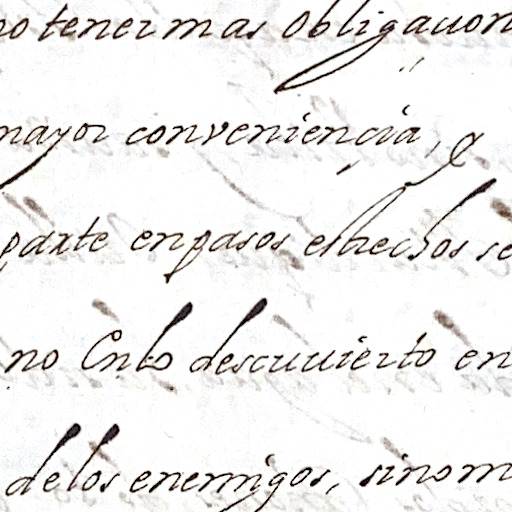 no tener mas obligacion
mayor conveniencia, q
parte enpasos estrechos se
no Enlo descuuierto en
delos enemigos, sinom